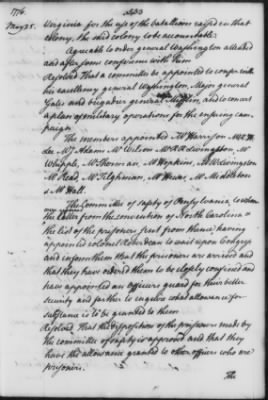 1776.
May 25.
Virginia for the use of the battalions raised in that
colony, the said colony to be accountable.
Agreeable to order general Washington attended
and after some conference with him
Resolved That a committee be appointed to confer with
his excellency general Washington, Major general
Gates and brigadier general Mifflin, and to concert
a plan of military operations for the ensuing cam-
paign.
The members appointed Mr Harrison Mr R. H.
Lee Mr J Adams Mr Wilson Mr R R Livingston Mr
Whipple, Mr Sherman Mr Hopkins, Mr W Livingston
Mr Read, Mr Tilghman, Mr Hewes Mr Middleton
& Mr Hall.
The Committee of safety of Pensylvania, to whom
the letter from the convention of North Carolina &
the list of the prisoners sent from thence, having
appointed colonel Roberdeau to wait upon Congress
and inform them that the prisoners are arrived and
that they have ordered them to be closely confined and
have appointed an officers guard for their better
security and farther to enquire what allowance for
subsistance is to be granted to them
Resolved, That the disposition of the prisoners made by
the committee of safety is approved and that they
have the allowance granted to other officers who are
prisoners.
The